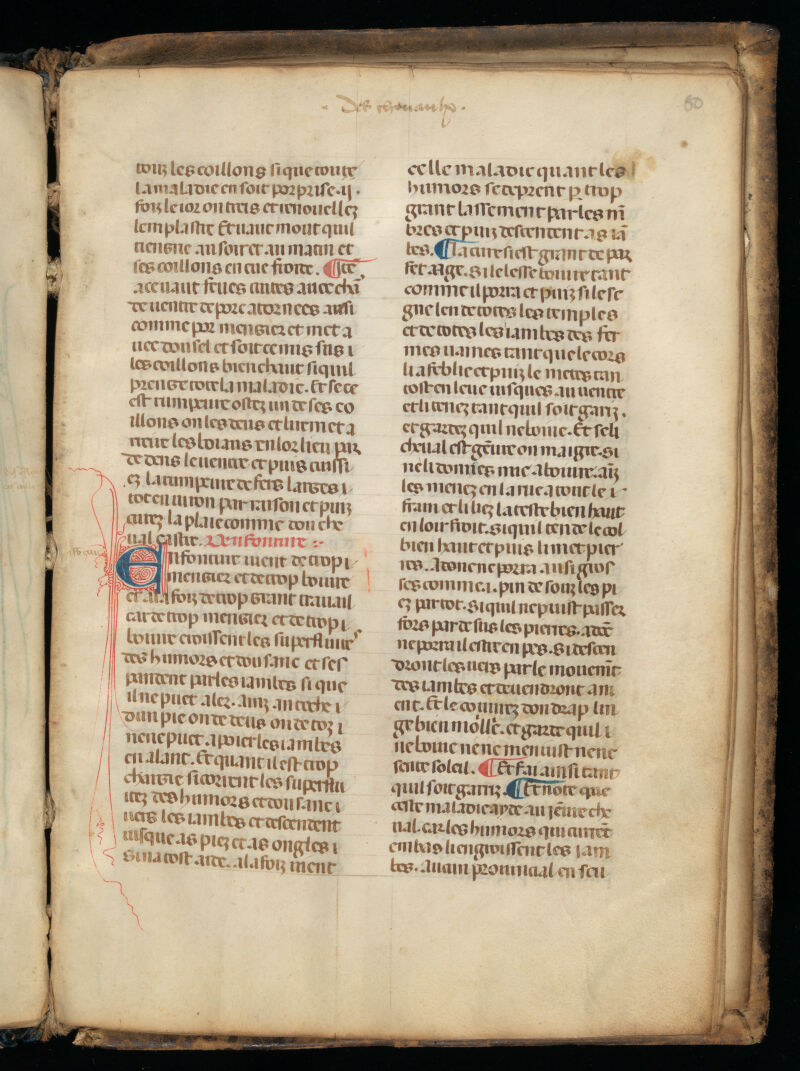 Des chevaus
60
touz les coillons si que toute
la maladie en soit porprise .ij.
foiz le ior ou treis et renouellez
lemplastre Et uaut mout quil
tiengne au soir et au matin et
ses coillons en eue froide. ¶ Ite
a ce uaut feues cuites auec chā
de uentre de porc atornees ausi
comme por mengier et met a
uec dou sel et soit ce mis sus i
les coillons bien chaut si quil
prengne tote la maladie. Et se ce
est rumpeure ostez un de ses co
illons ou les deus et lui met a
riere les boiaus en lor lieu par
de dens le uentre et puis cuissi
ez la rumpeure de fers larges i
tot en uiron par raison et puiz
curez la plaie comme dou che
ual castre. De enfonture :~
Enfonture uient de trop i
mengier et de trop boiure
et a la foiz de trop grant trauail
car de trop mengier et de trop i
boiure croissent les superfluites
des humors et dou sanc et ses
pandent par les iambes si que
il ne puet aler. Ainz an ceche i
dun pie on de deus on de toz i
ne ne puet apoier les iambes
en alant. Et quant il est trop
chargie si corrent les superflu
itez des humors et dou sanc i
uers les iambes et descendent
iusque as piez et as ongles i
si na tost aide. a la foiz uient
celle maladie quant les
humors se deprent ꝑ trop
grant lassement par les mī
bres et puiz descendent as iā
bes. ¶ La cure si est grant de par
fet aage. Si le lesse boiure tant
comme il porra et puiz si le se
gne len de totes les temples
et de totes les iambes des fer
mes uaines tant que le cors
li afeblie et puiz le metes tan
tost en leue iusques au uentre
et li tenez tant quil soit gariz.
et gardez quil ne boiue. Et se li
cheual est gēure ou maigre. si
ne li donnes mie a boiure. aiz
les menez en la riue a tout le i
frain et li liez la teste bien haut
en loir froit. si quil tende le col
bien haut et puis li met pier
res. Adonc ne porra ausi gros
ses comme .i. pin de souz les pi
ez par tot. Si quil ne puist passer
fors par de sus les pierres. adōc
ne porra il estre en pes. Si descen
dront les uers par le mouemt
des iambes et deuendront ani
ent. Et le couurez dou drap lin
ge bien molle. et garde quil i
ne boiue ne ne meniust ne ne
sente soleil. ¶ Et fai ainsi tant
quil soit gariz. ¶ Et note que
ceste maladie ayde au iēune che
ual. car les humors qui curēt
en bas li engroissent les iam
bes. Aucun prouincial en seu